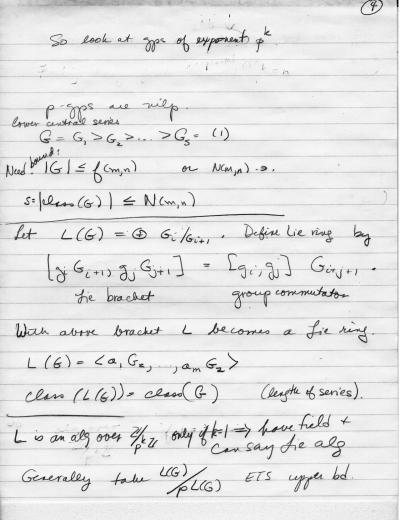 ④
So look at gps of exponent p^k
p-gps are nilp.
lower central series
G = G₁ > G₂ > ... > G_s = (1)
Need bound: |G| ≤ f(m,n) or N(m,n) ∋.
s = |class(G)| ≤ N(m,n)
Let L(G) = ⊕ G_i/G_{i+1}. Define Lie ring by
[g_i G_{i+1}, g_j G_{j+1}] = [g_i, g_j] G_{i+j+1}.
Lie bracket group commutator
With above bracket L becomes a Lie ring.
L(G) = <a₁G₂, ..., a_m G₂>
class(L(G)) = class(G) (length of series).
L is an alg over Z/p^k Z only if k=1 ⇒ have field +
can say Lie alg
Generally take L(G)/pL(G) ETS upper bd.